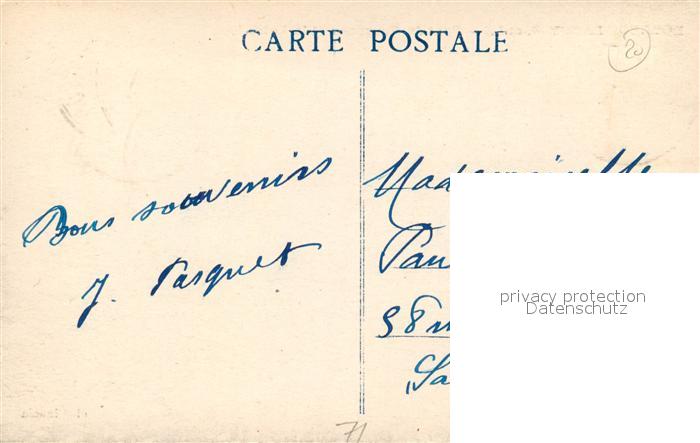 CARTE POSTALE
20
Bons souvenirs
J. Pasquet
Mademoiselle
privacy protection
Datenschutz
71